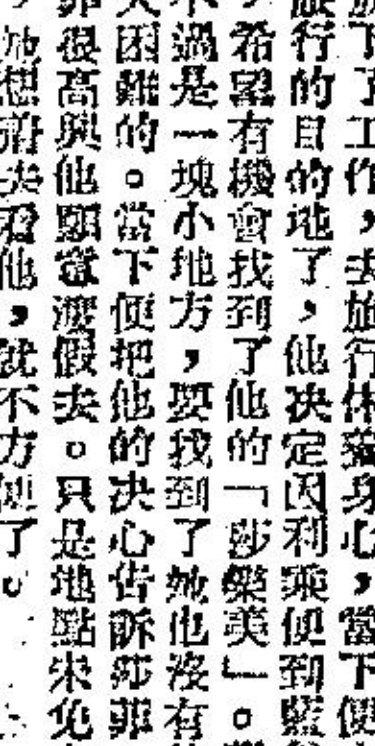 下了工作，去旅行休養身心，當下便
行的目的地了，他决定因利乘便到藍
希望有機會找到了他的「莎樂美」。
過是一塊小地方，要找到了她也沒有
困難的。當下便把他的决心告訴莎菲
很高興他願意渡假去。只是地點未免
她想再去看他，就不方便了。